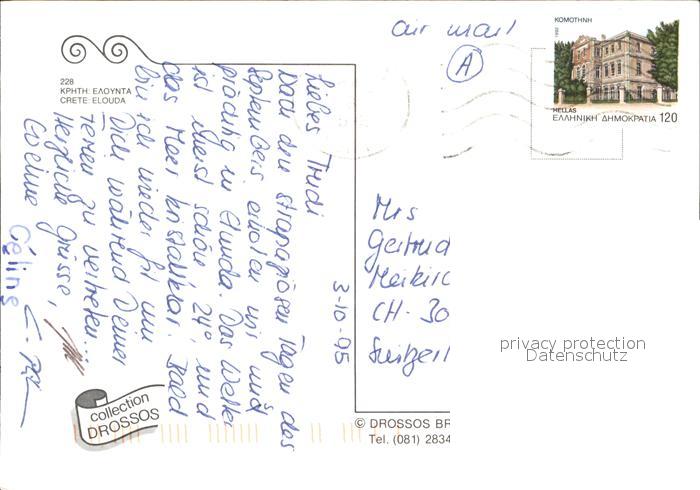 air mail
A
ΚΟΜΟΤΗΝΗ
1992
HELLAS
ΕΛΛΗΝΙΚΗ ΔΗΜΟΚΡΑΤΙΑ 120
228
ΚΡΗΤΗ: ΕΛΟΥΝΤΑ
CRETE: ELOUDA
3-10-95
Liebes Trudi
Nach den strapaziösen Tagen des
Septembers, erholen wir uns
prächtig in Elunda. Das Wetter
ist meist schön 24°, und
das Meer kristallklar. Bald
bin ich wieder fit um
Dich während Deiner
Ferien zu vertreten...
Herzliche Grüsse,
Eveline
Céline
Mrs
Gertrud
Meikirc
CH-30
Switzerl
privacy protection
Datenschutz
collection
DROSSOS
© DROSSOS BR
Tel. (081) 2834